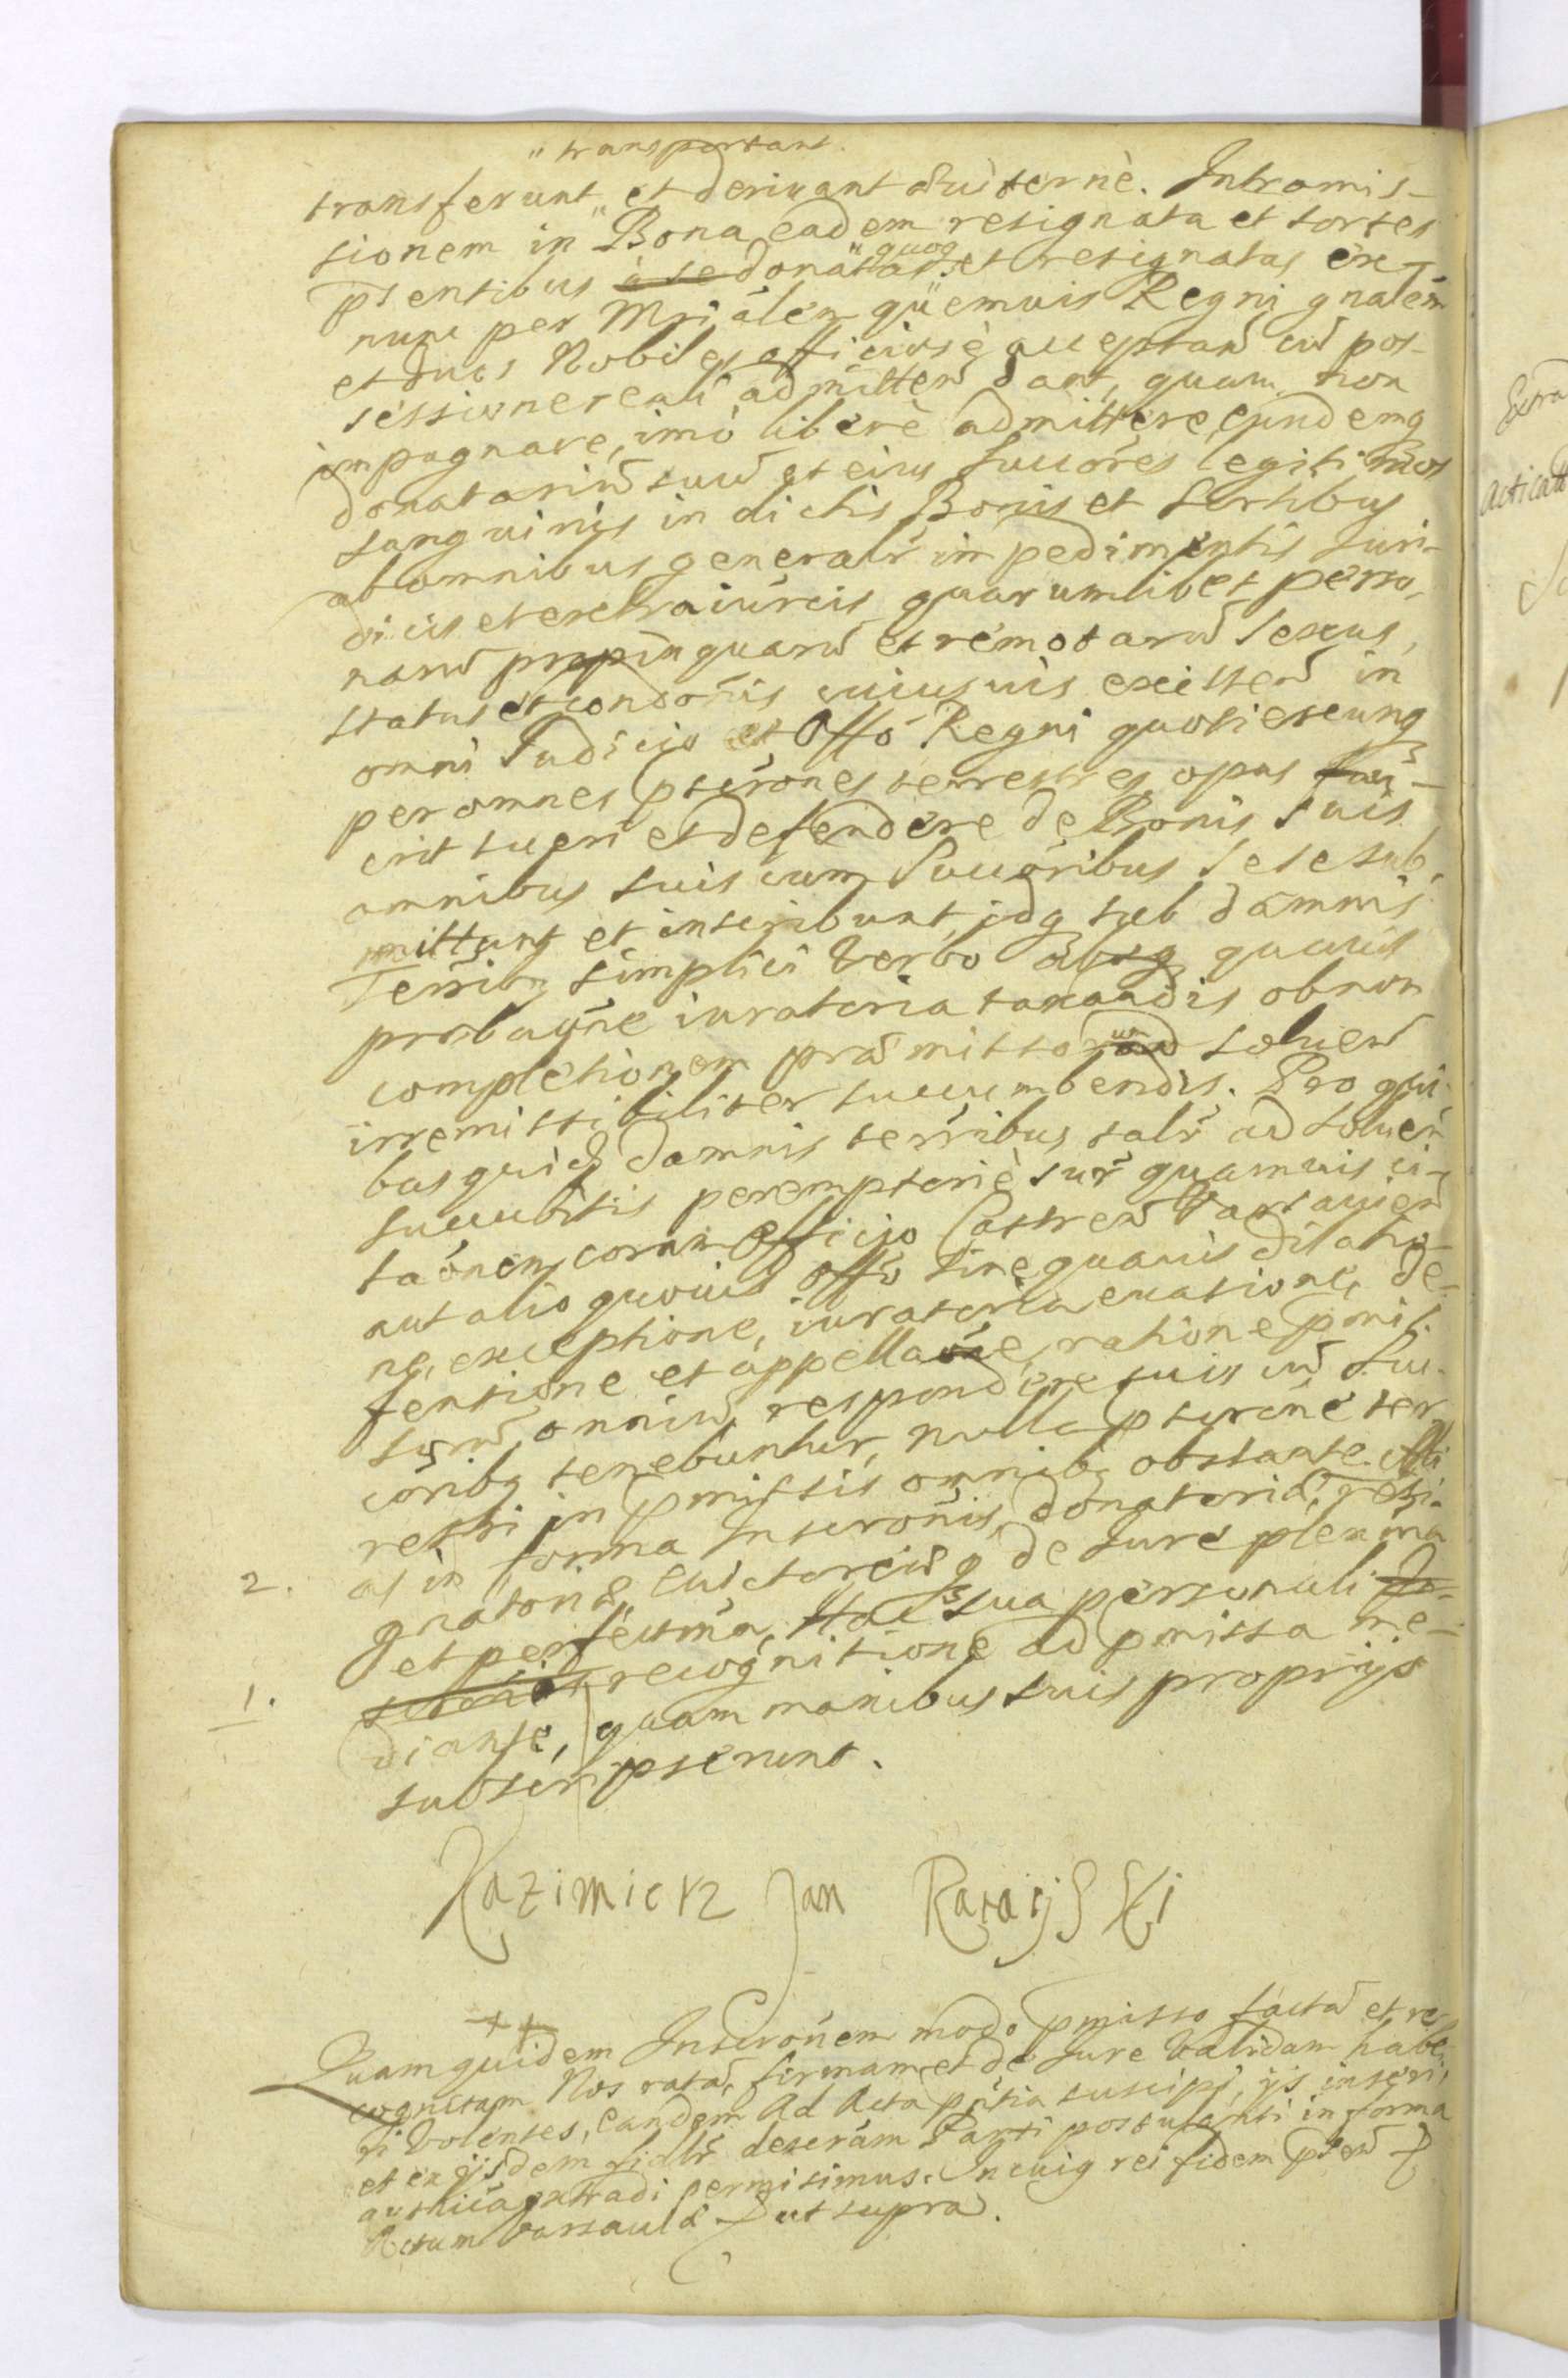 " transportant.
transferunt " et derivant diuiternè. Intromis-
sionem in Bona eadem resignata et sortes
pñtibus à se donatas " quoq et resignatas ex-
nunc per Mriälem quemuis Regni gnalem
et duos Nobiles officiosè acceptan cum pos-
sessione reali admitten dant, quam non
impugnare, imò liberè admittere, eundemq
donatarium suum et eius succores legitimos
sanguinis in dictis Bonis et sortibus
ab omnibus generalr impedimentis Juri-
dicis et extraiurcis quarumlibet perso,
narum propinquarum et remotarum sexus,
status et condonis cuiusuis existen in
omni Judicio et Offo Regni quotiescunq
per omnes pscrones terrestres opus fuè-
erit tueri et defendere de Bonis suis
omnibus suis cum Succoribus sese sub,
mittunt et inscribunt, idq sub damnis
Terribq simplici Verbo absq quauis
probaone iuratoria taxandis ob non
completionem præmissorum soluen
irremissibiliter succumbendis. Pro qui-
bus quidem damnis terribus talr ad soluen
succubitis peremptoriè sup quamuis ci-
taonem coram Officio Castren Varsavien
aut alio quouis Offo sine quauis dilatio-
ne, exceptione, iuratoria euasione, de-
fensione et appellaone, ratione pmis-
sorum omnium respondere suis cum Suc-
coribq tenebuntur, nulla pscrone ter-
restri in pmissis omnibq obstante. Alli
as in forma Inscronis donatoriæ, resi-
2. gnatoriæ, euictoriæq de Jure plenma
et perfectma, Hac sua personali In-
1. scrone recognitione ad pmissa me-
diante, quam manibus suis proprijs
subscripserunt.
Kazimierz Jan Rarayski
++
Quamquidem Inscronem modo pmisso factam et re-
cognitam Nos ratam, firmam, et de Jure Validam habe-
ri Volentes, Eandem Ad Acta pntia suscipi, ijs inseri,
et ex ijsdem fidlr descram Parti postulanti in forma
authica extradi permisimus. In cuiq rei fidem psen
Actum Varsauiæ ut supra.